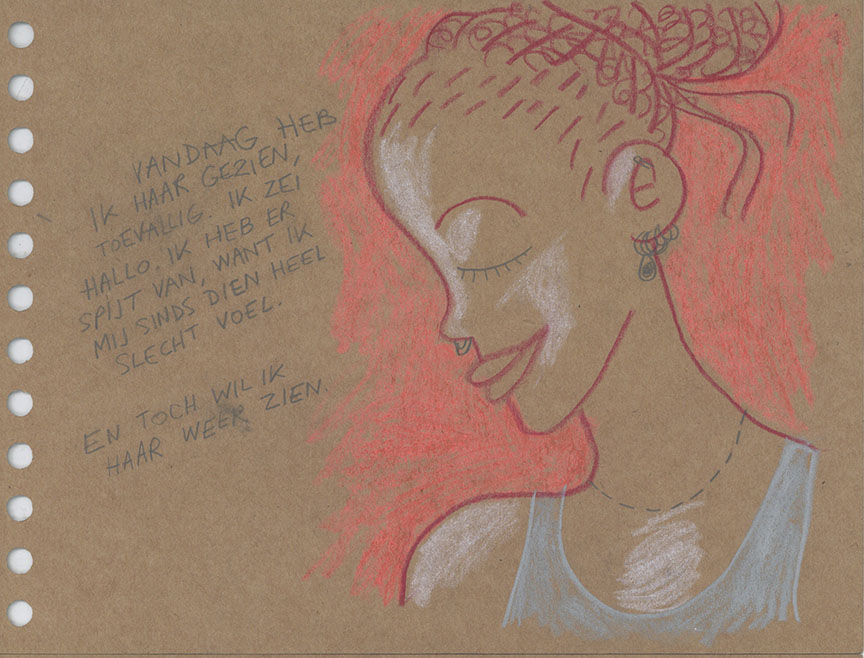 VANDAAG HEB
IK HAAR GEZIEN,
TOEVALLIG. IK ZEI
HALLO. IK HEB ER
SPIJT VAN, WANT IK
MIJ SINDS DIEN HEEL
SLECHT VOEL.
EN TOCH WIL IK
HAAR WEER ZIEN.